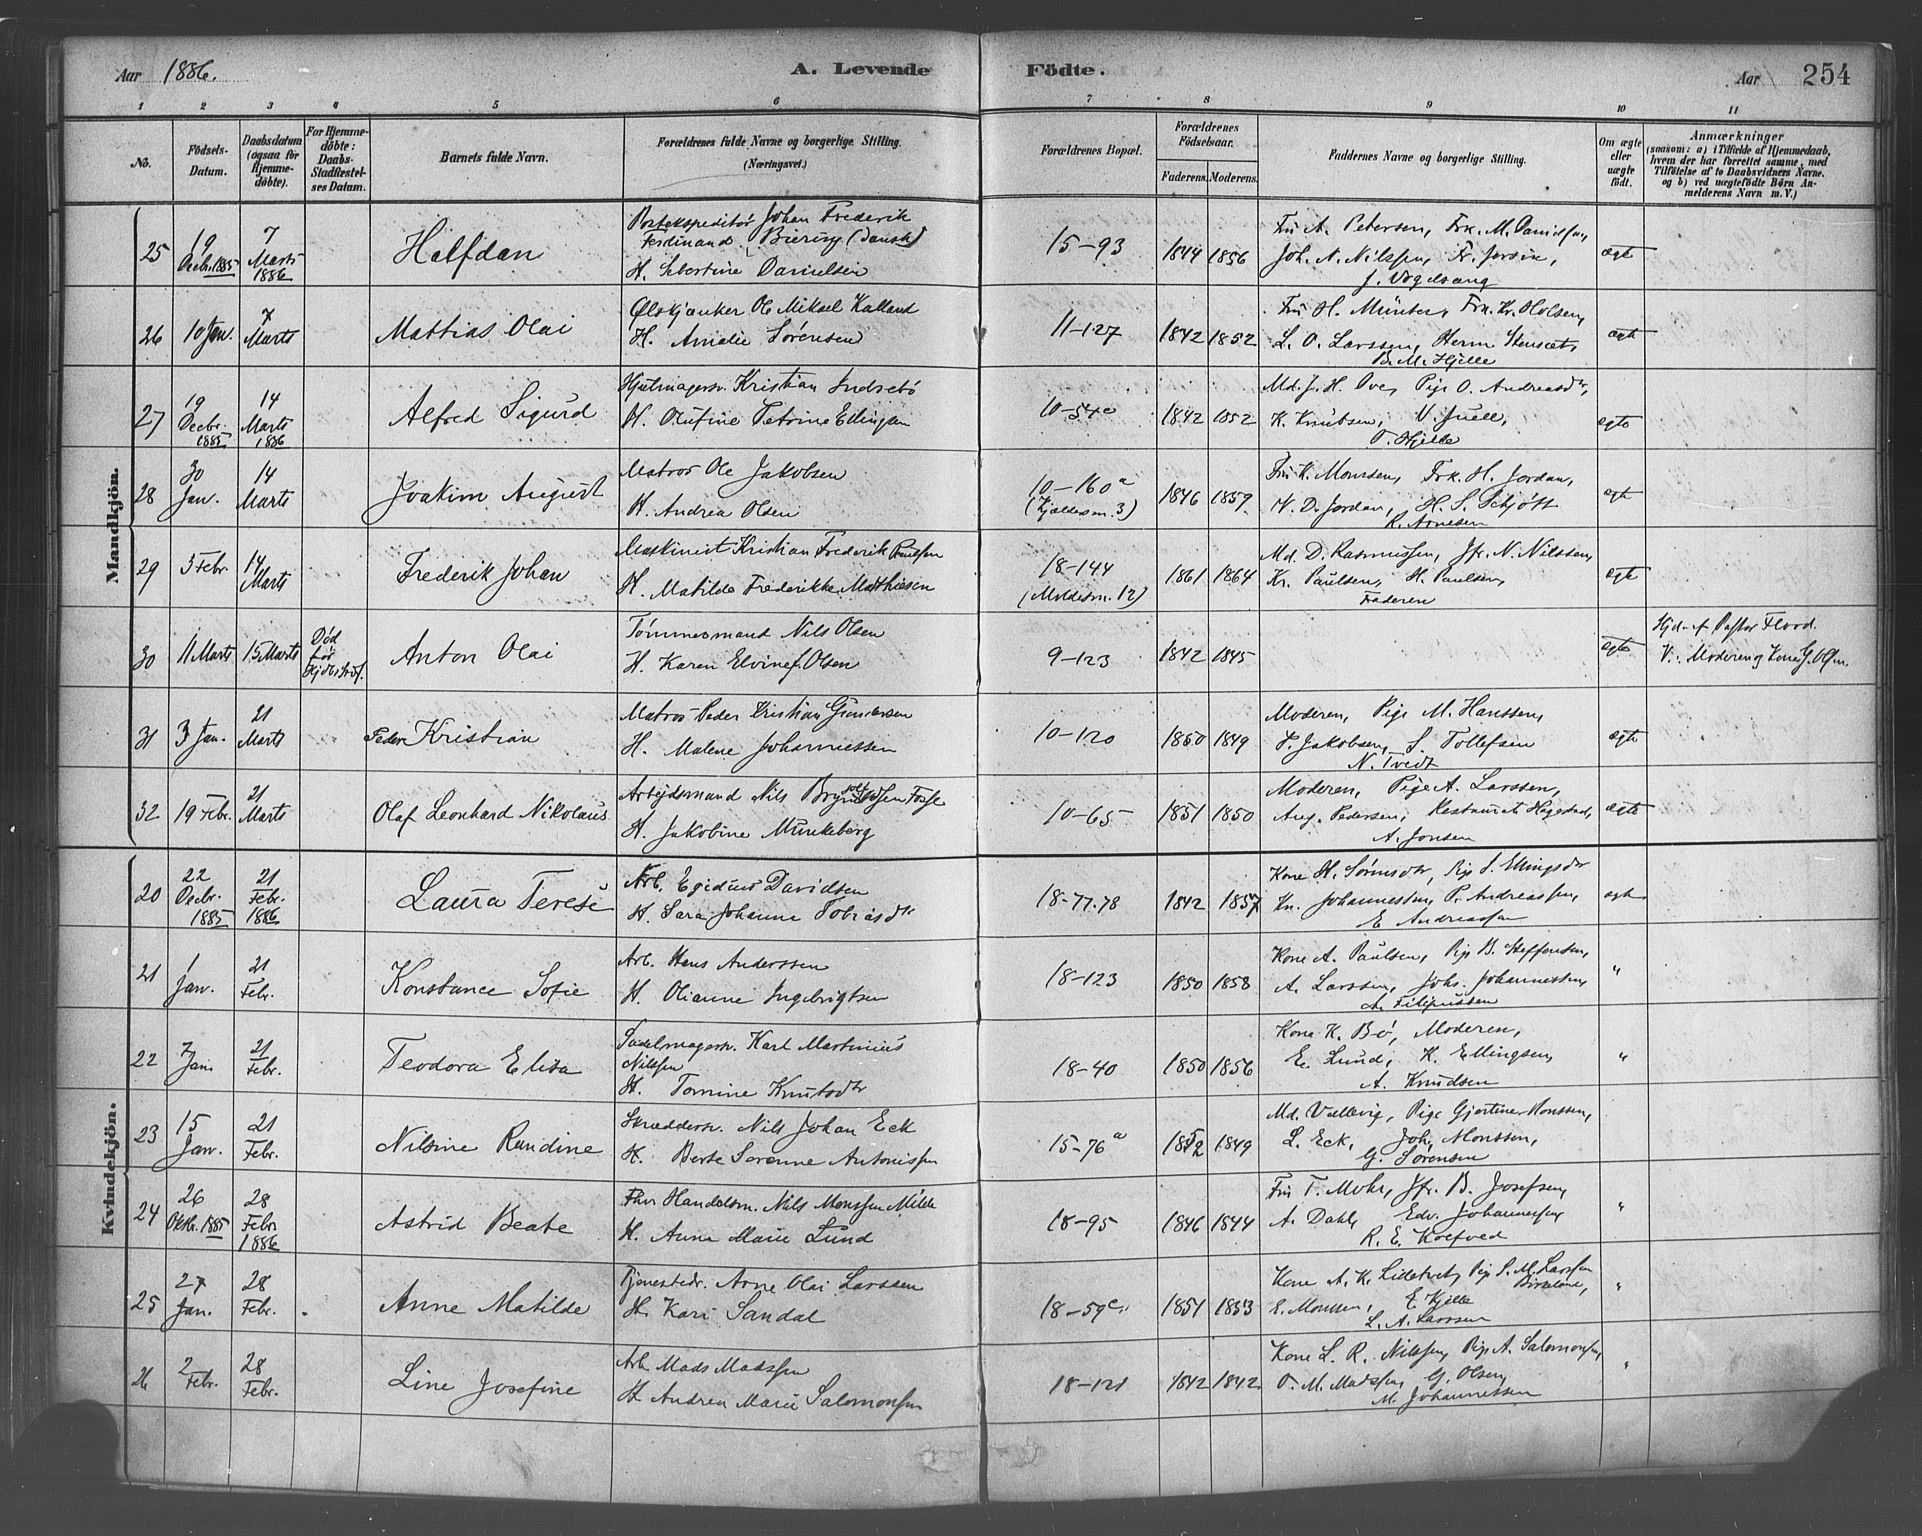 Aar 1886.
A. Levende Födte.
Aar
254
1 2 3 4 5 6 7 8 9 10 11
No.
Födsels-Datum.
Daabsdatum (ogsaa för Hjemme-döbte).
For Hjemme-döbte: Daabs-Stadfæstel-ses Datum.
Barnets fulde Navn.
Forældrenes fulde Navne og borgerlige Stilling. (Næringsvei.)
Forældrenes Bopæl.
Forældrenes Födselsaar.
Faderens. Moderens.
Faddernes Navne og borgerlige Stilling.
Om ægte eller uægte födt.
Anmærkninger
(saasom: a) i Tilfælde af Hjemmedaab, hvem der har forrettet samme, med Tilföielse af to Daabsvidners Navne, og b) ved uægtefödte Börn An-melderens Navn m. V.)
Mandkjön.
25 19 Decbr. 1885 7 Marts 1886 Halfdan
Postekspeditör Johan Frederik
Ferdinand Biering (Dansk)
H. Danielsen
15-93 1844 1856
Fru A. Petersen, Frk. M. Danielsen,
Joh. N. Nilssen, Fr. Jersin,
J. Vogelsang
ægte
26 10 Jan. 7 Marts Mattias Olai
Ølskjænker Ole Mikael Kalland
H. Amalie Sørensen
11-127 1842 1852
Fru H. Münster, Frk. Kr. Holsen,
L. O. Larssen, Herm Stenset,
B. M. Hjelle
ægte
27 19 Decbr. 1885 14 Marts 1886 Alfred Sigurd
Hjulmagersv. Kristian Indsebö
H. Olufine Petrine Ellingsen
10-54 1842 1852
Md. J. H. Ove, Pige O. Andreasdtr,
K. Knutsen, V. Juell,
T. Hjelle
ægte
28 30 Jan. 14 Marts Joakim August
Matros Ole Jakobsen
H. Andrea Olsen
10-160a
(Kjeldersm. 3)
1846 1859
Fru K. Monsen, Frk. H. Jordan,
N. D. Jordan, H. S. Schjött
R. Arnesen
ægte
29 3 Febr. 14 Marts Frederik Johan
Maskinist Kristian Frederik Paulsen
H. Matilde Frederikke Matthiesen
18-144
(Moldesm. 12)
1861 1864
Md. D. Rasmussen, Jfr. N. Nilssen,
Kr. Paulsen, H. Paulsen,
Faderen
ægte
30 11 Marts 15 Marts Död för Anton Olai
Tömmesmand Nils Olsen
H. Karen Elvine f. Olsen
9-123 1842 1845
ægte
Hjd. af Pastor Flood.
V. Moderen og Kone G. Olsen.
31 3 Jan. 21 Marts Peder Kristian
Matros Peder Kristian Gundersen
H. Malene Johannessen
10-120 1850 1849
Moderen, Pige M. Hanssen,
T. Jakobsen, S. Tollefsen
N. Tvedt
ægte
32 19 Febr. 21 Marts Olaf Leonhard Nikolaus
Arbeidsmand Nils Brynildsen Fosse
H. Jakobine Munkeberg
10-65 1851 1850
Moderen, Pige A. Larssen,
Aug. Pedersen, Restaurat. Hegestad,
A. Jonsen
ægte
Kvindekjön.
20 22 Decbr. 1885 21 Febr. 1886 Laura Terese
Arb. Egidius Davidsen
H. Sara Johanne Tobiasdtr
18-77.78 1842 1857
Kone H. Sörensdtr, Pige S. Ellingsdtr
Kn. Johannessen, P. Andreassen,
E. Andreassen
ægte
21 1 Jan. 21 Febr. Konstance Sofie
Arb. Hans Anderssen
H. Olianne Ingebrigtsen
18-123 1850 1858
Kone A. Paulsen, Pige B. Steffensen,
A. Larssen, Johs. Johannessen,
A. Filipussen
"
22 7 Jan. 21 Febr. Teodora Elisa
Sadelmagersv. Karl Martinius
Nilssen
H. Tomine Knutsdtr
18-40 1850 1856
Kone K. Bö, Moderen,
E. Lund, K. Ellingsen,
A. Knudsen
"
23 15 Jan. 21 Febr. Nilsine Randine
Skræddersv. Nils Johan Eck
H. Berte Serenne Antonissen
15-76a 1852 1849
Md. Vallevig, Pige Gjertine Monssen,
L. Eck, Joh. Monssen,
G. Sörensen
24 26 Oktbr. 1885 28 Febr. 1886 Astrid Beate
Fhv Handelsm. Nils Monssen Milde
H. Anna Marie Lund
18-95 1846 1844
Fru T. Mohr, Jfr. B. Josefsen,
A. Dahl, Edv. Johannessen,
R. E. Kolfved
"
25 27 Jan. 28 Febr. Anne Matilde
Tjenestedr. Arne Olai Larssen
H. Kari Sandal
18-59c 1851 1853
Kone A. K. Lidtveit, Pige S. M. Larssen
Birkeland,
E. Monssen, E. Hjelle
L. A. Larssen
"
26 2 Febr. 28 Febr. Line Josefine
Arb. Mads Madssen
H. Andrea Marie Salomonsen
18-121 1842 1842
Kone L. R. Nilssen, Pige A. Salomonsen,
O. M. Madssen, G. Olsen,
M. Johannessen
"